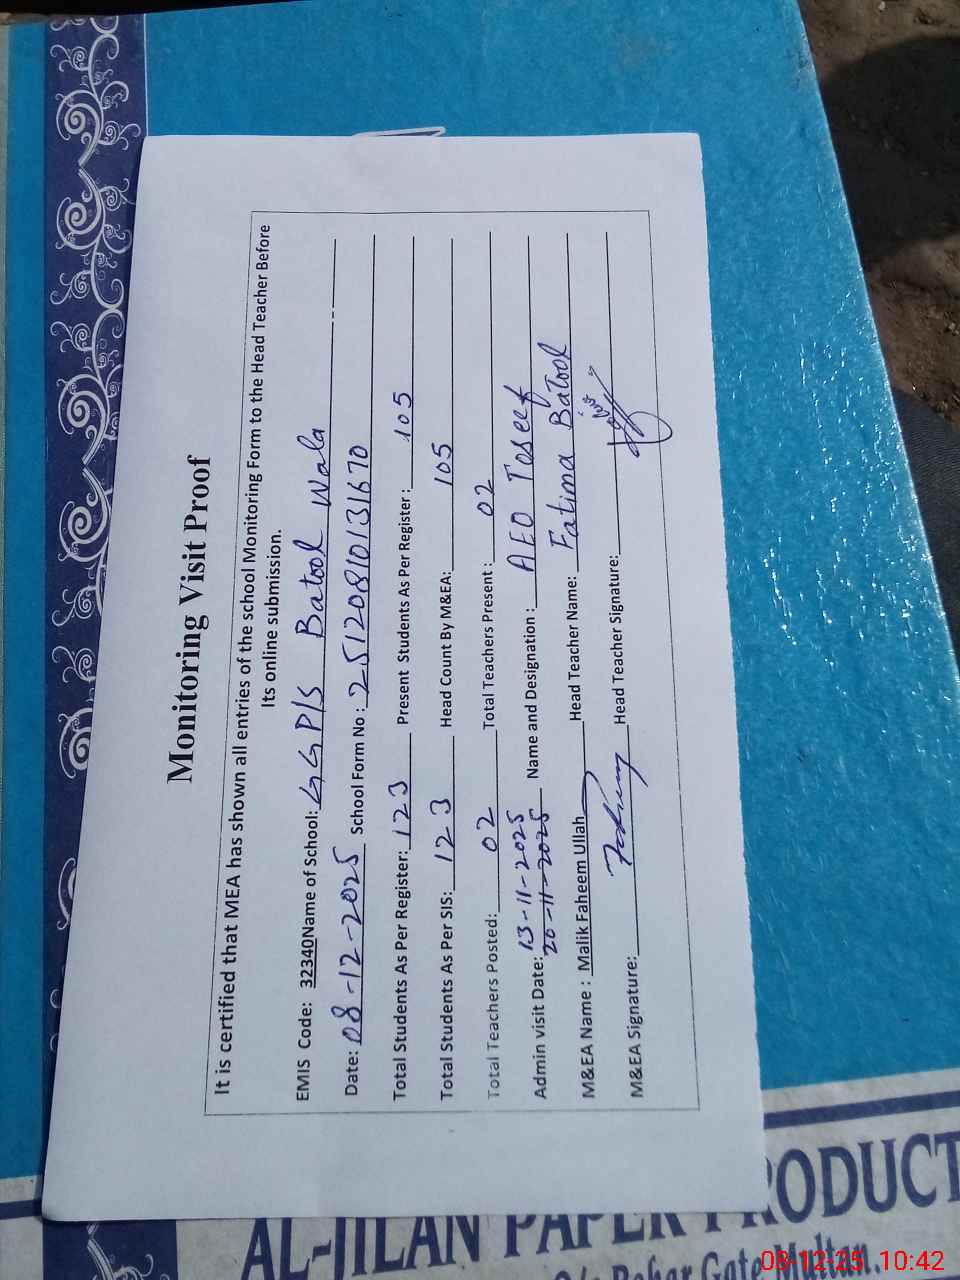 Monitoring Visit Proof
It is certified that MEA has shown all entries of the school Monitoring Form to the Head Teacher Before
Its online submission.
EMIS Code: 32340 Name of School: GGP/S Batool Wala
Date: 08-12-2025 School Form No: 251208101131670
Total Students As Per Register: 123 Present Students As Per Register: 105
Total Students As Per SIS: 123 Head Count By M&EA: 105
Total Teachers Posted: 02 Total Teachers Present: 02
13-11-2025
Admin visit Date: 20-11-2025 Name and Designation: AEO Toseef
M&EA Name: Malik Faheem Ullah Head Teacher Name: Fatima Batool
M&EA Signature: Head Teacher Signature:
AL-JILAN PAPER PRODUCT
Gate Multan.
08-12-25 10:42